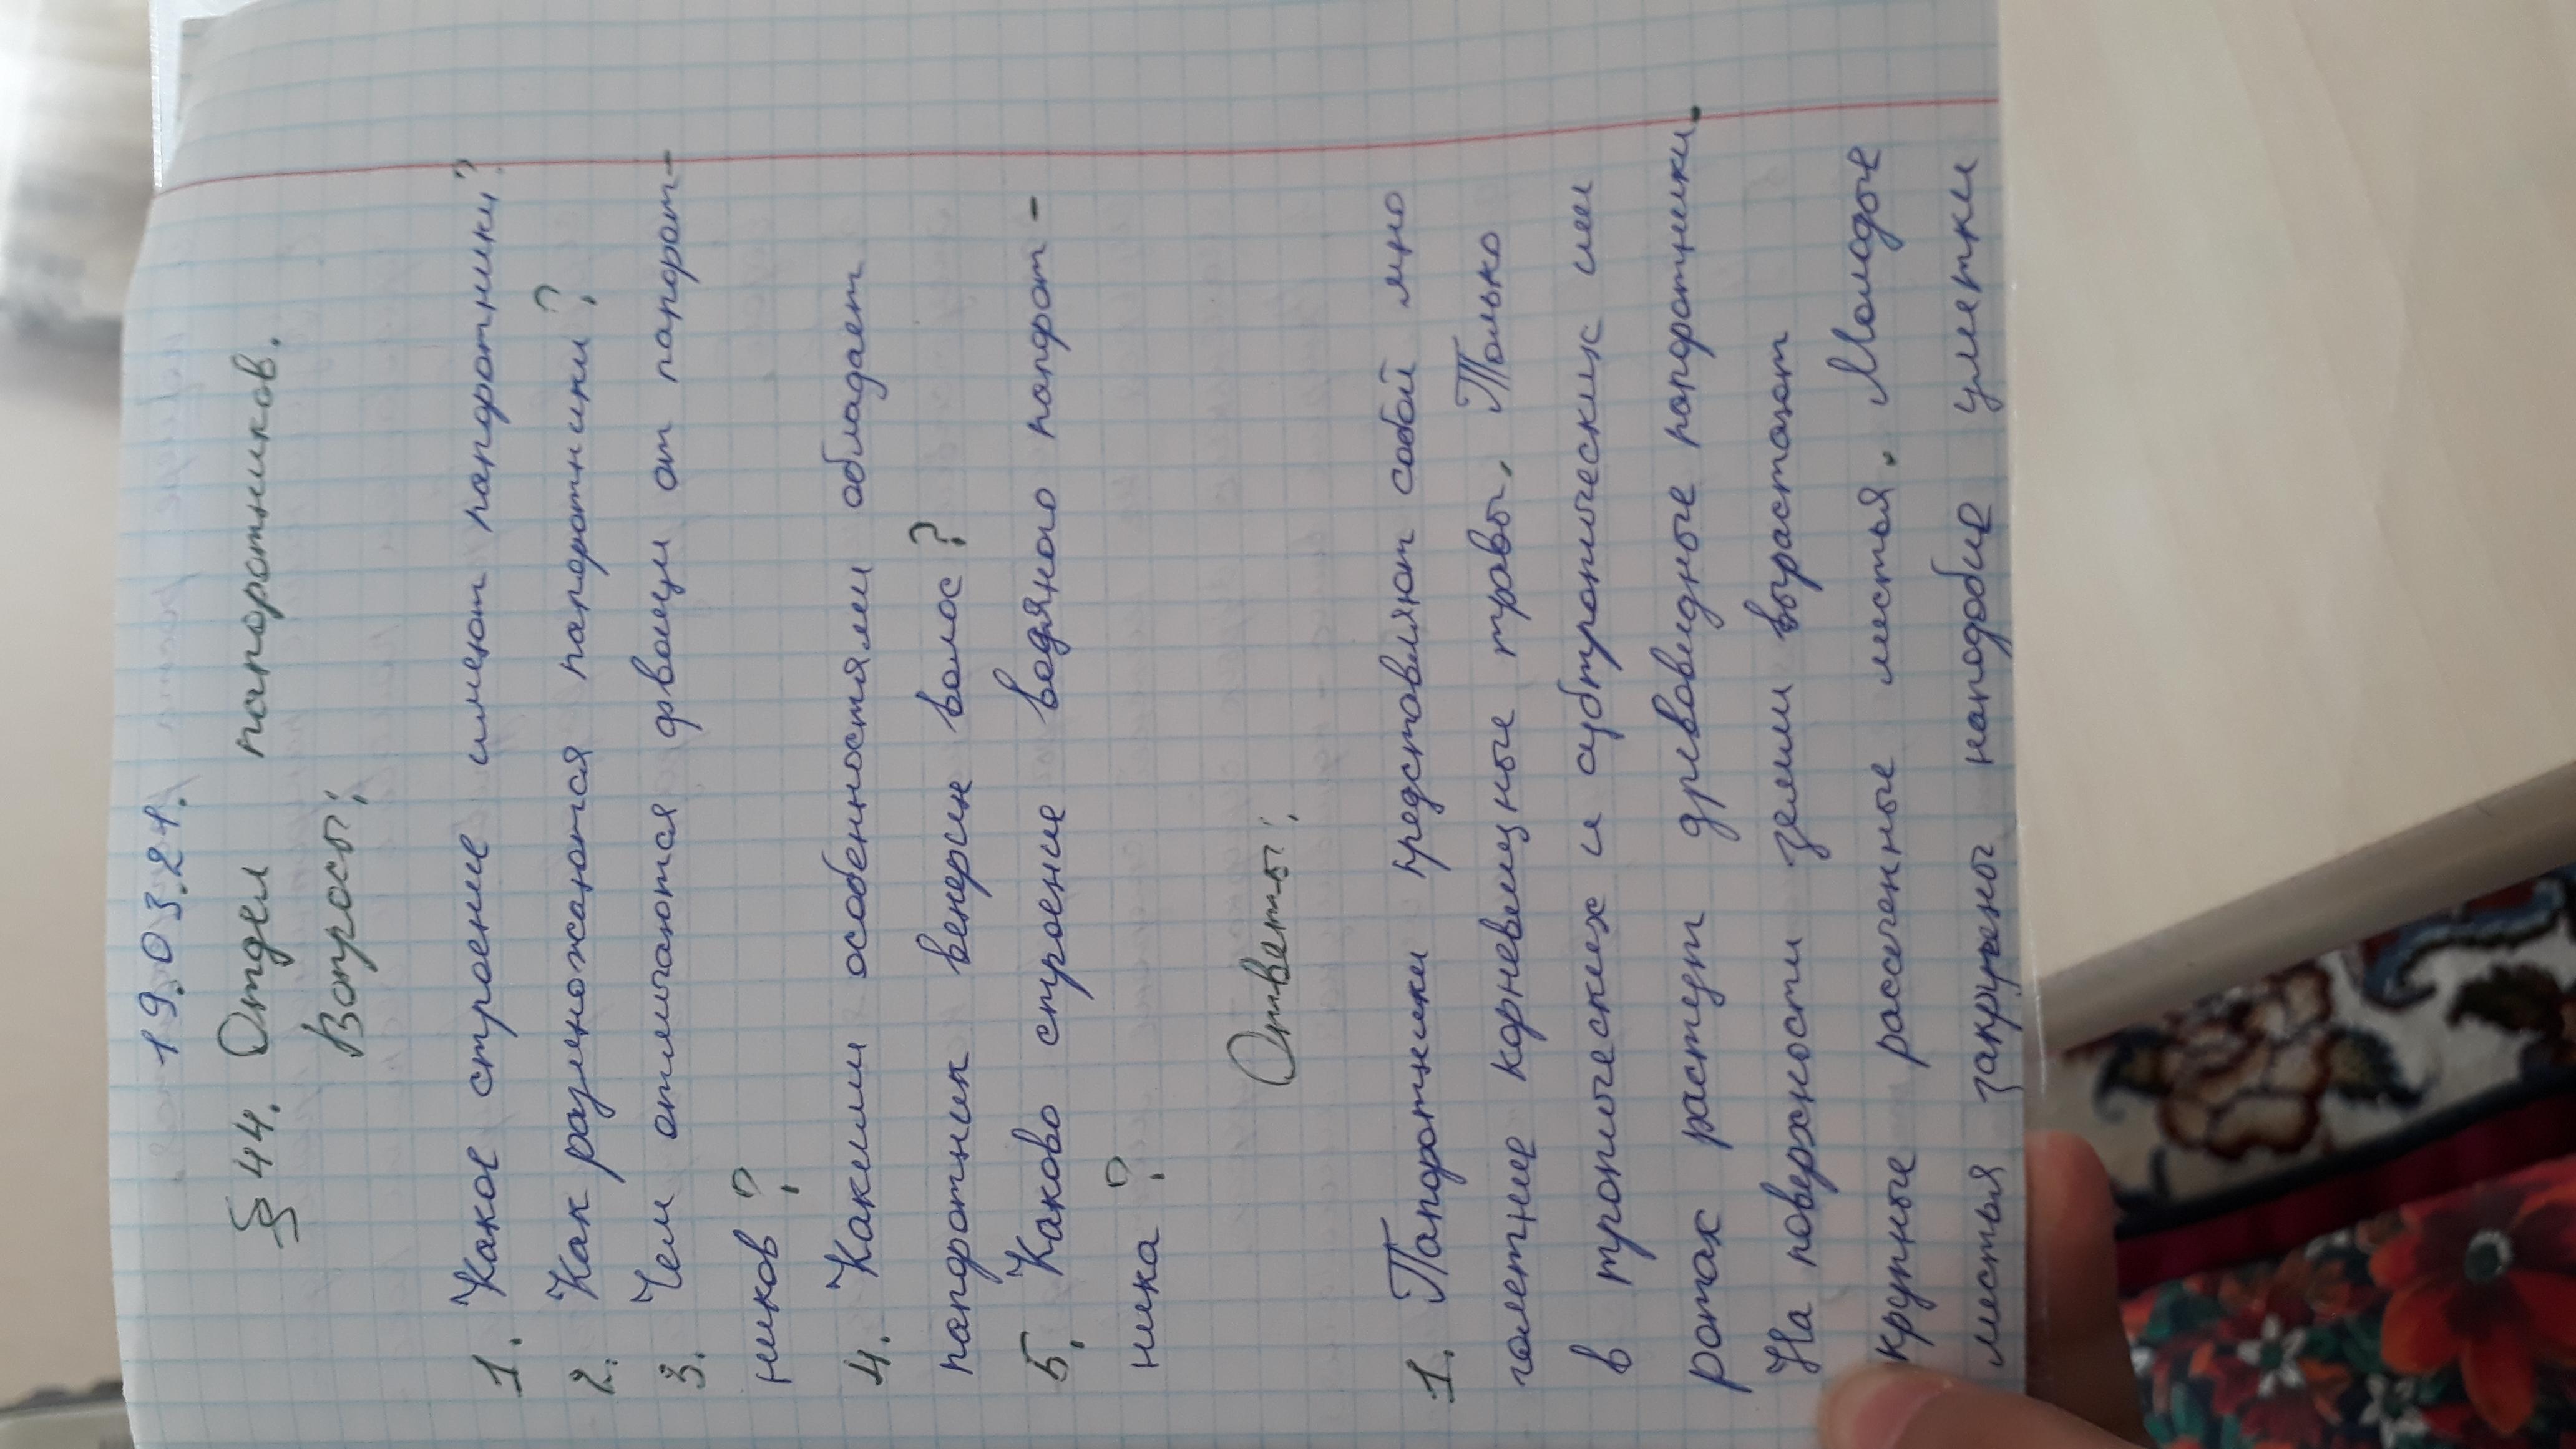 19.03.24.
§44. Отдел папоротников.
Вопросы:
1. Какое строение имеют папоротники?
2. Как размножаются папоротники?
3. Чем отличаются хвощи от папорот-
ников?
4. Какими особенностями обладает
папоротник венерин волос?
5. Каково строение водяного папорот-
ника?
Ответы:
1. Папоротники представляют собой мно
голетние корневищные травы. Только
в тропических и субтропических ши
ротах растут древовидные папоротники.
На поверхности земли вырастают
крупные рассеченные листья. Молодые
листья закручены наподобие улитки